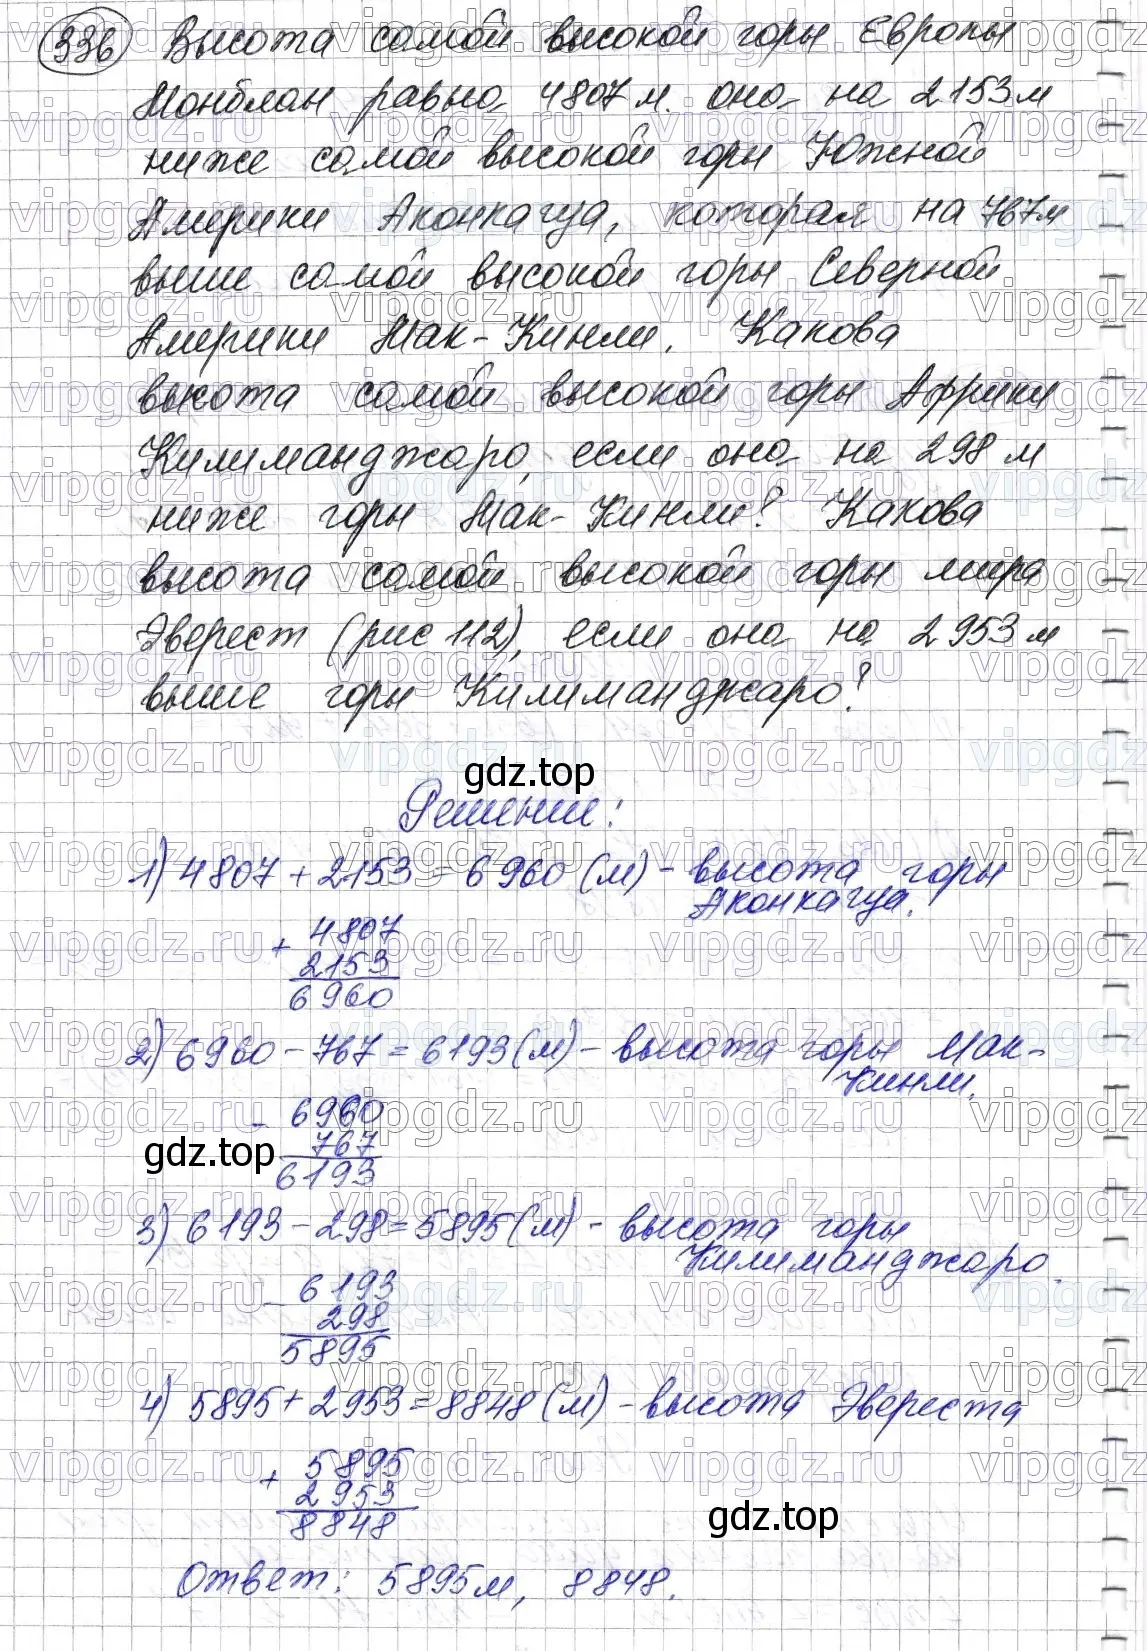 336 Высота самой высокой горы Европы
Монблан равна 4807 м. она на 2153 м
ниже самой высокой горы Южной
Америки Аконкагуа, которая на 767 м
выше самой высокой горы Северной
Америки Мак-Кинли. Какова
высота самой высокой горы Африки
Килиманджаро, если она на 298 м
ниже горы Мак-Кинли? Какова
высота самой высокой горы мира
Эверест (рис 112), если она на 2953 м
выше горы Килиманджаро?
gdz.top
Решение:
1) 4807 + 2153 = 6960 (м) - высота горы
Аконкагуа.
+ 4807
2153
6960
2) 6960 - 767 = 6193 (м) - высота горы Мак-
Кинли.
- 6960
767
gdz.top
6193
3) 6193 - 298 = 5895 (м) - высота горы
Килиманджаро.
- 6193
298
5895
4) 5895 + 2953 = 8848 (м) - высота Эвереста
+ 5895
2953
8848
gdz.top
Ответ: 5895 м, 8848.